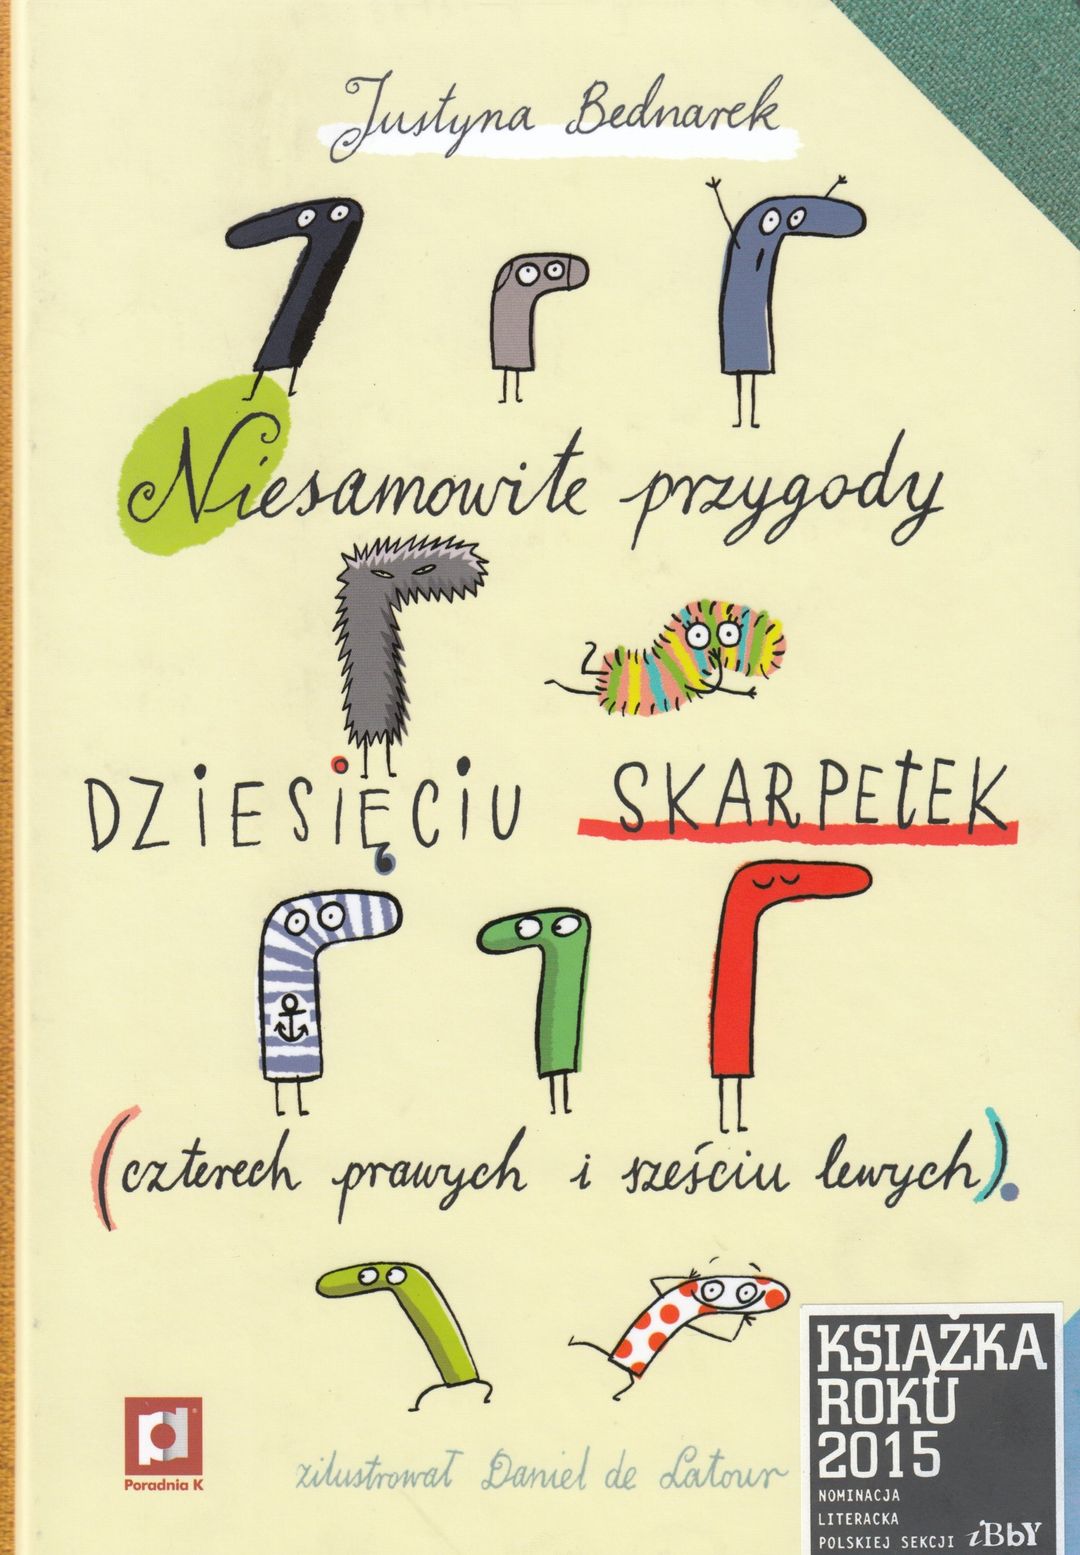 Justyna Bednarek
Niesamowite przygody
DZIESIĘCIU SKARPETEK
(czterech prawych i sześciu lewych).
zilustrował Daniel de Latour
Poradnia K
KSIĄŻKA
ROKU
2015
NOMINACJA
LITERACKA
POLSKIEJ SEKCJI iBbY